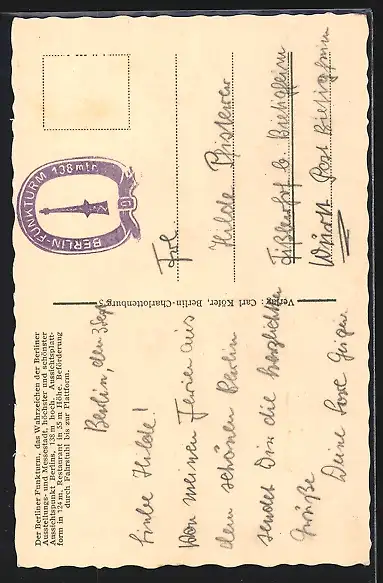 Der Berliner Funkturm, das Wahrzeichen der Berliner
Ausstellungs- und Messestadt, höchster und schönster
Aussichtspunkt Berlins, 138 m hoch. Aussichtsplatt-
form in 124 m. Restaurant in 55 m Höhe. Beförderung
durch Fahrstuhl bis zur Plattform.
Berlin, den 3. Sep.
Liebe Hilde!
Von meinen Ferien aus
dem schönen Berlin
sendet Dir die herzlichsten
Grüße
Deine Lore
Verlag: Carl Köfer, Berlin-Charlottenburg 5
BERLIN-FUNKTURM 138 mtr.
Frl.
Hilde Pfisterer
b Bietigheim
Württ Post Bietigheim